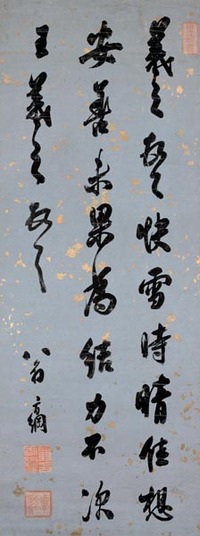 羲之頓首快雪時晴佳想
安善未果為結力不次
王羲之頓首
翁方綱